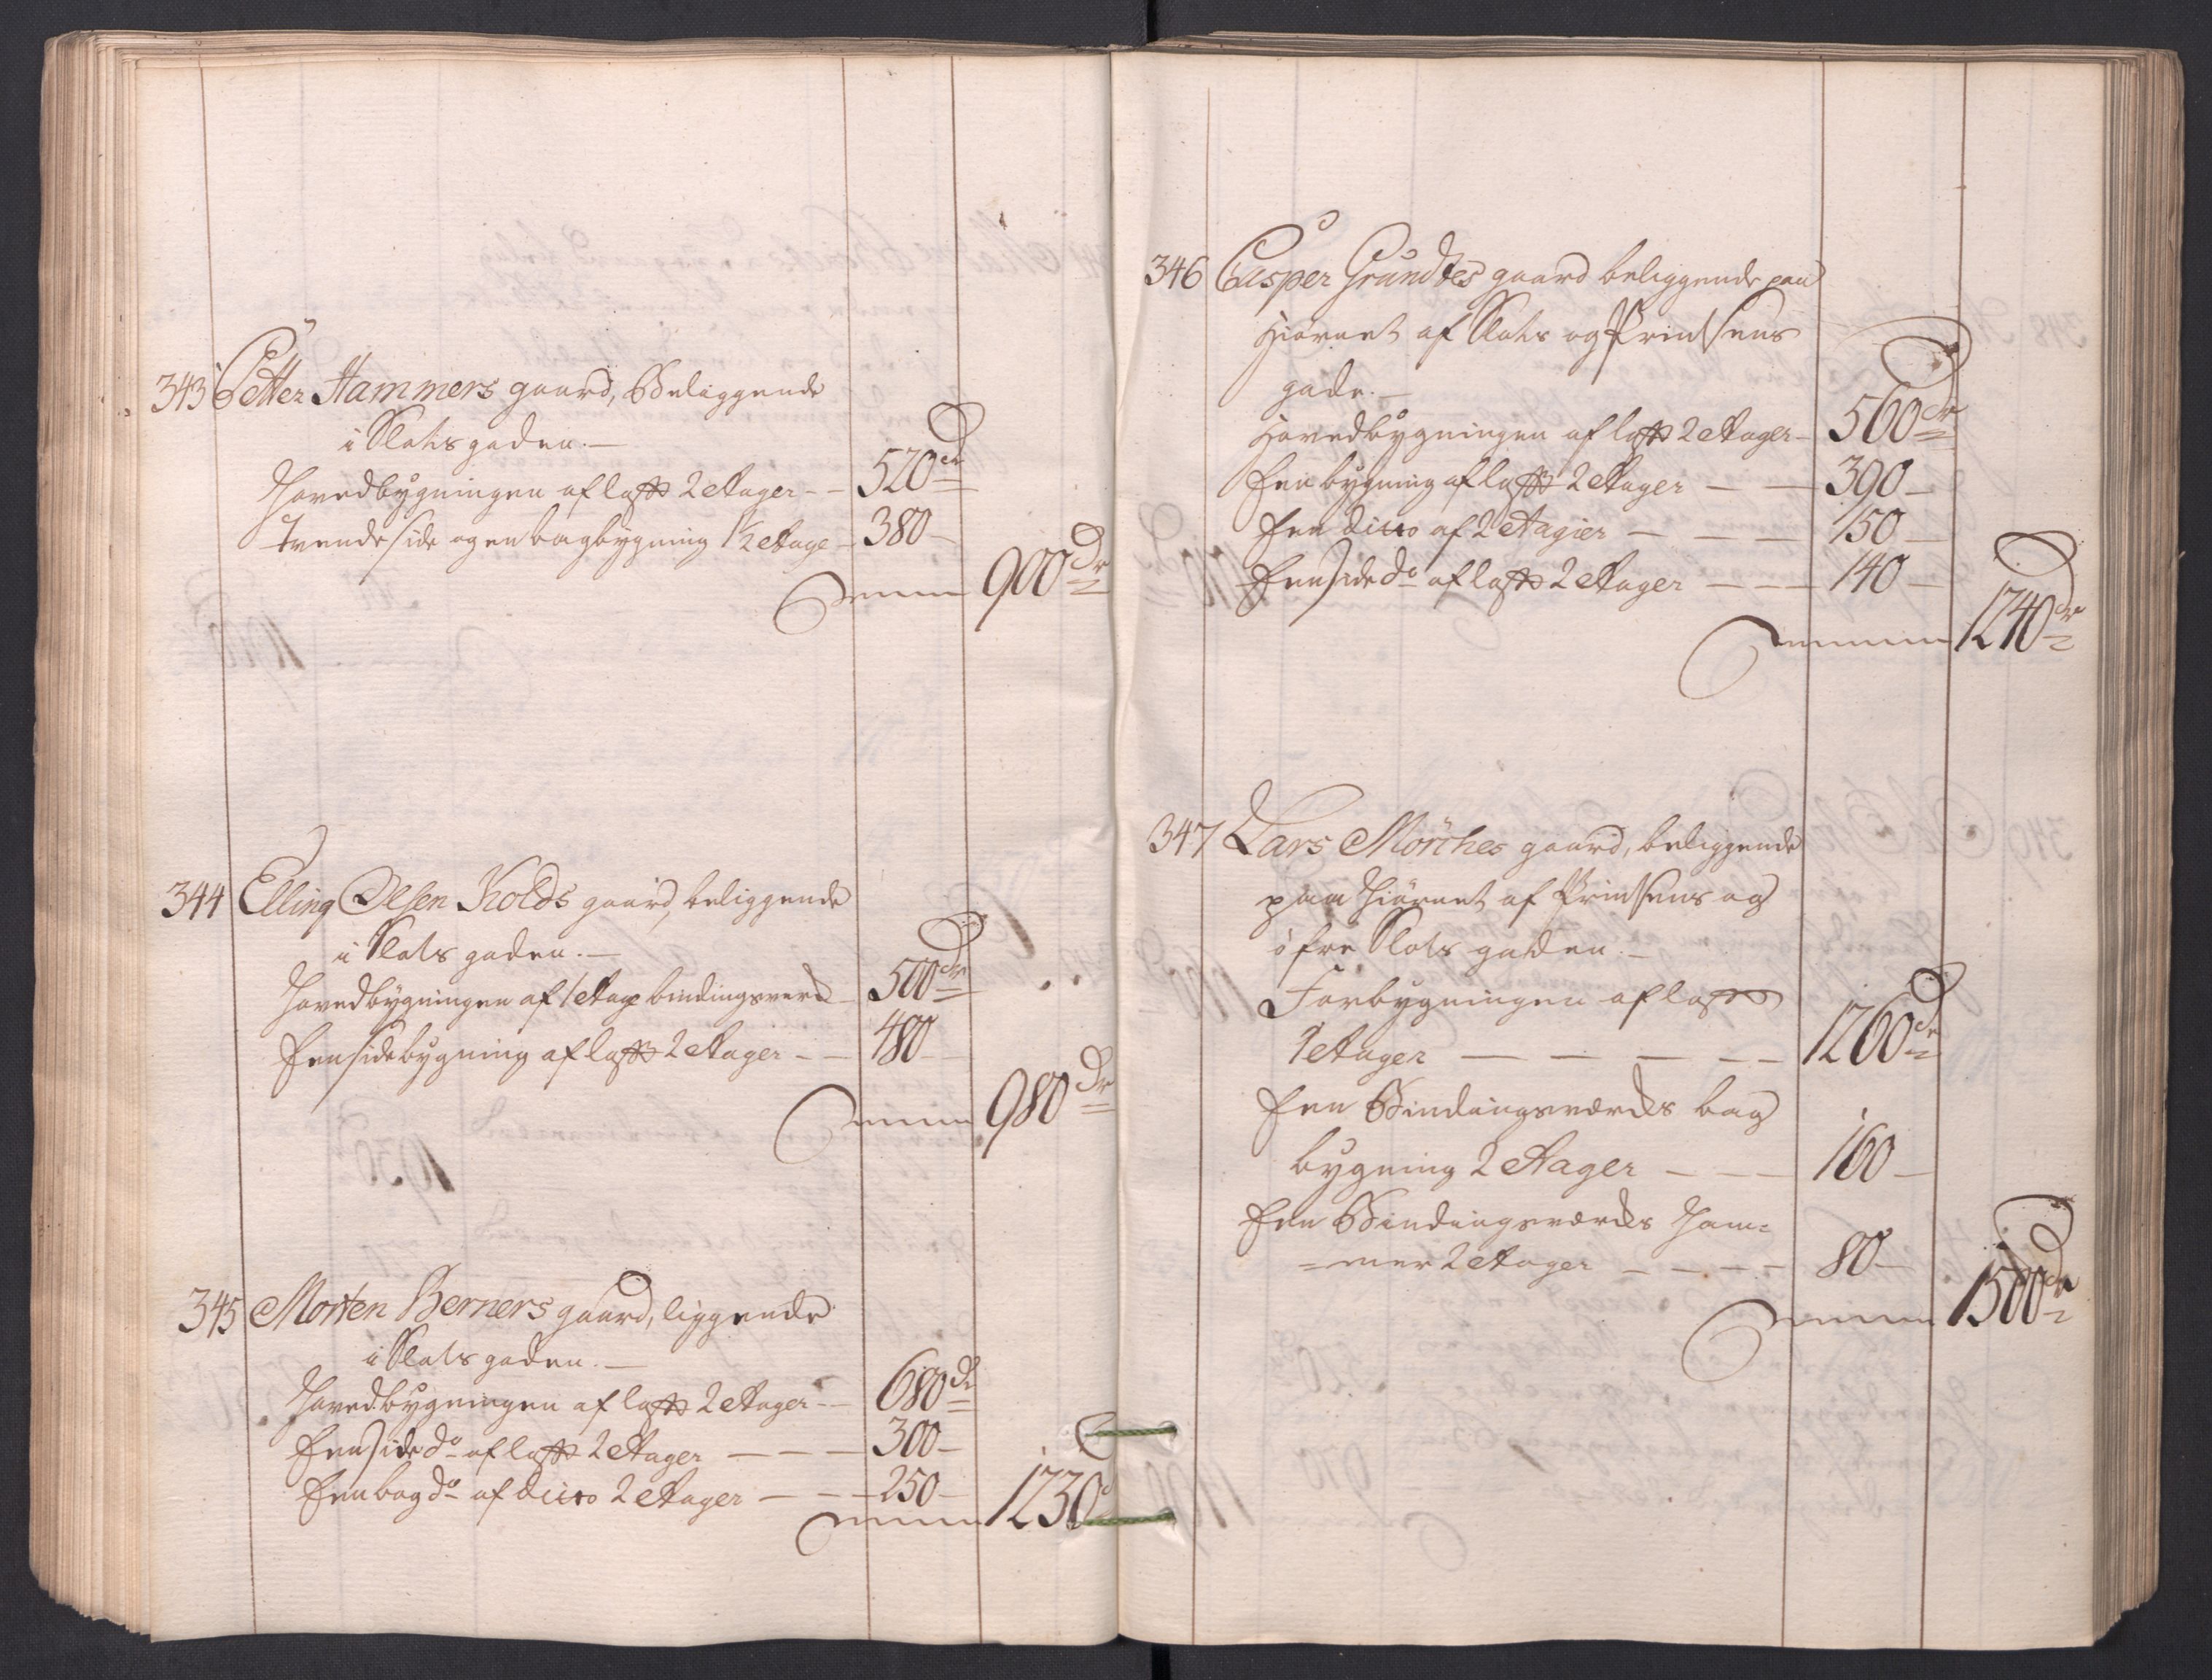 343 Petter Hammers gaard, Beliggende
i Slots gaden.—
Hovedbygningen af laft 2 Etager - - 520 dr
Tvende side og en bagbygning 1½ Etage - 380 -
Summa 900 dr
344 Elling Olsen Kolds gaard, beliggende
i Slots gaden.—
Hovedbÿgningen af 1 Etage bindingsverk - 500 dr
Een sidebygning af laft 2 Etager - - 480 -
Summa 980 dr
345 Morten Berners gaard, liggende
i Slots gaden.—
Hovedbygningen af laft 2 Etager - - 680 dr
Een side do af laft 2 Etager - - - 300 -
Een bag do af ditto 2 Etager - - - 250 -
Summa 1230 d
346 Casper Grundtes gaard beliggende paa
Hiørnet af Slots og Prindsens
gade.—
Hovedbygningen af laft 2 Etager - 560 dr
Een bygning af laft 2 Etager - - 390 -
Een ditto af 2 Etagier - - - 150 -
Een side do af laft 2 Etager - - - 140 -
Summa 1240 dr
347 Lars Mörches gaard, beliggende
paa Hiörnet af Prindsens og
öfre Slots gaden.—
Forbygningen af laft
1 Etager - - - - - 1260 dr
Een Bindingsverks bag
bygning 2 Etager - - - 160 -
Een Bindingsverks Ham=
=mer 2 Etager - - - - 80 -
Summa 1500 dr